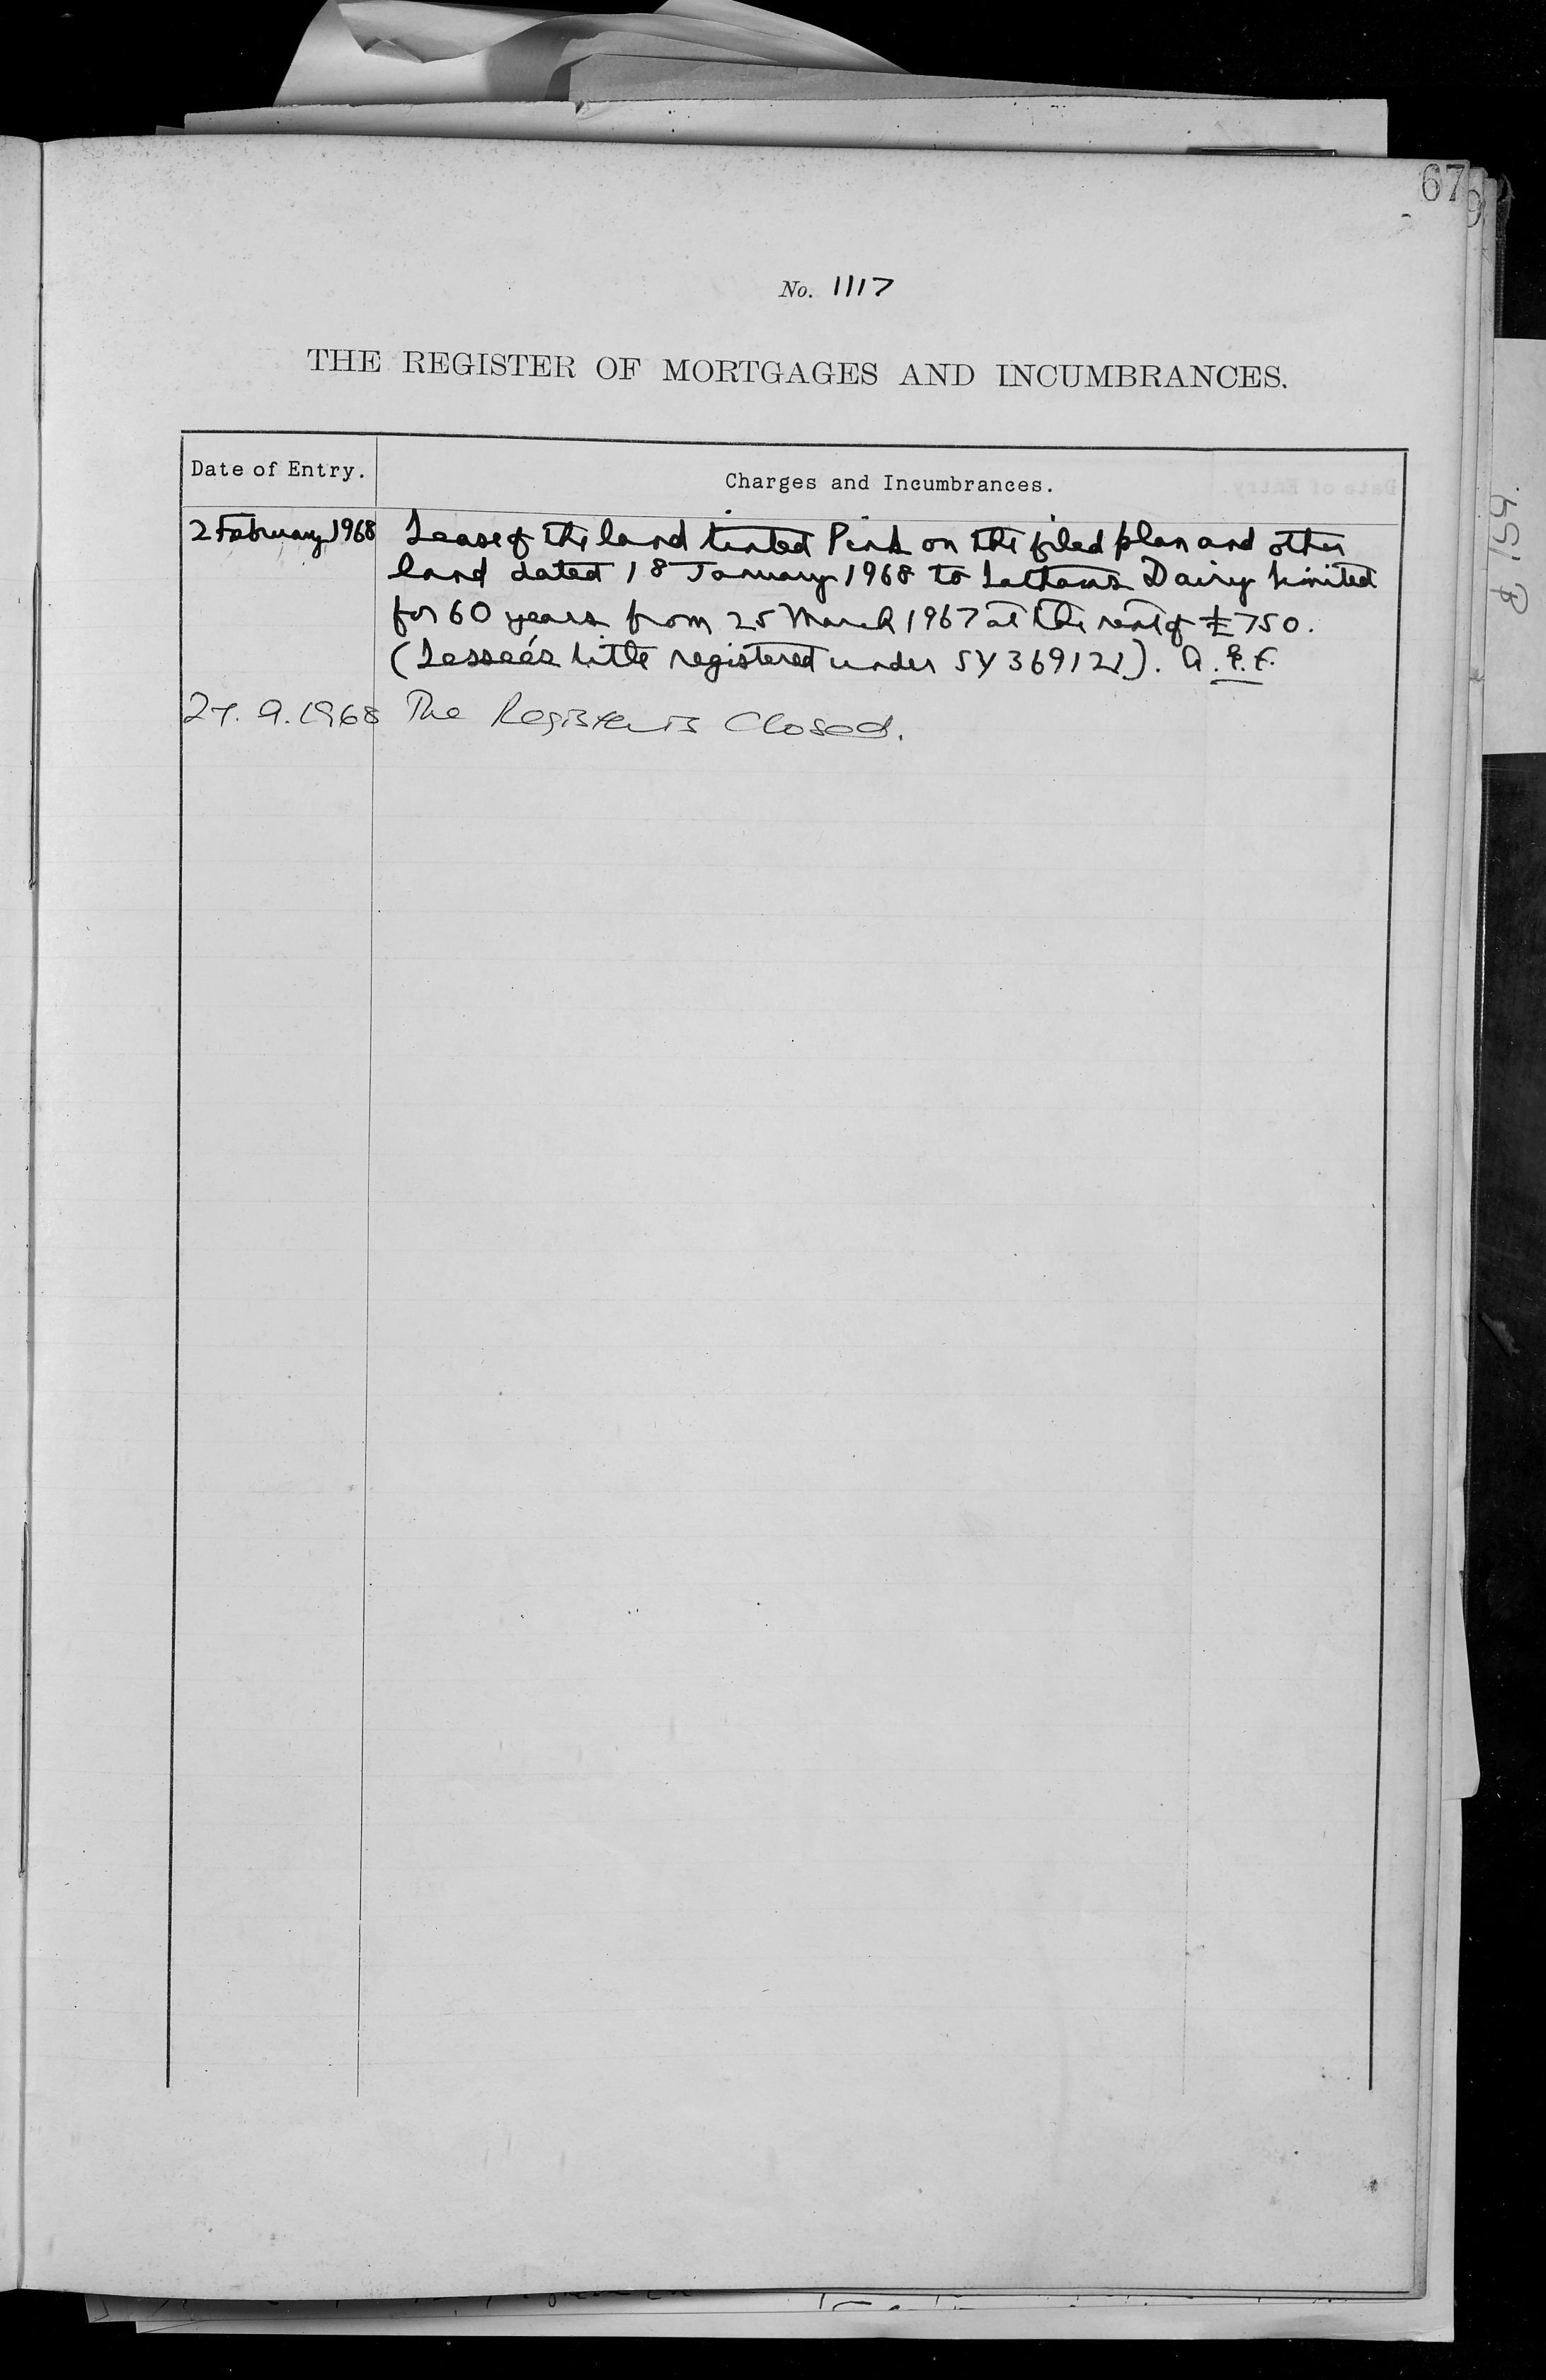 67
No. 1117
THE REGISTER OF MORTGAGES AND INCUMBRANCES.
Date of Entry.
Charges and Incumbrances.
2 February 1968 Lease of the land tinted Pink on the filed plan and other
land dated 18 January 1968 to Lathams Dairy Limited
for 60 years from 25 March 1967 at the rent of £750.
(Lessee's title registered under SY 369121).
9.1968 The Register is Closed.